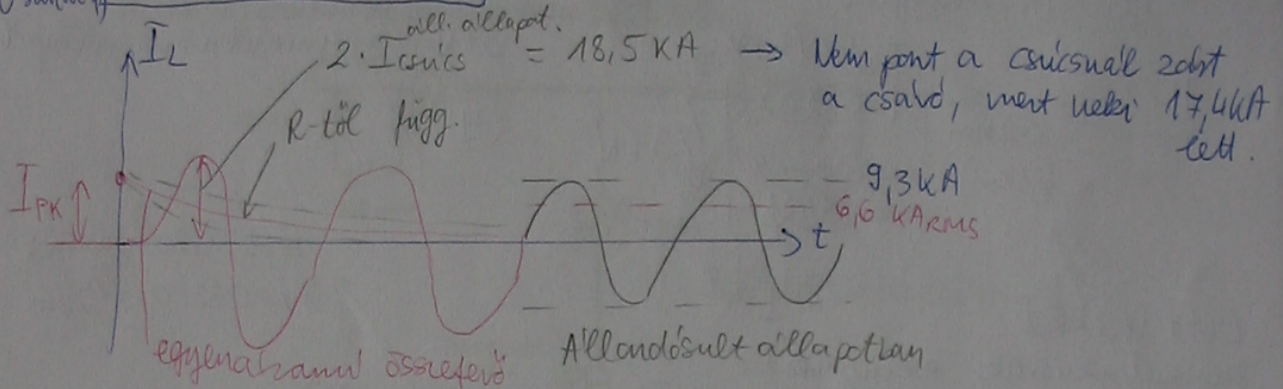 I_L
2·Icsúcs áll. állapot. = 18,5 kA → Nem pont a csúcsnál zárt
a csaló, mert neki 17,4 kA
lett.
R-től függ.
I_PK
9,3 kA
6,6 kA_RMS
t
egyenáramú összetevő
Állandósult állapotban